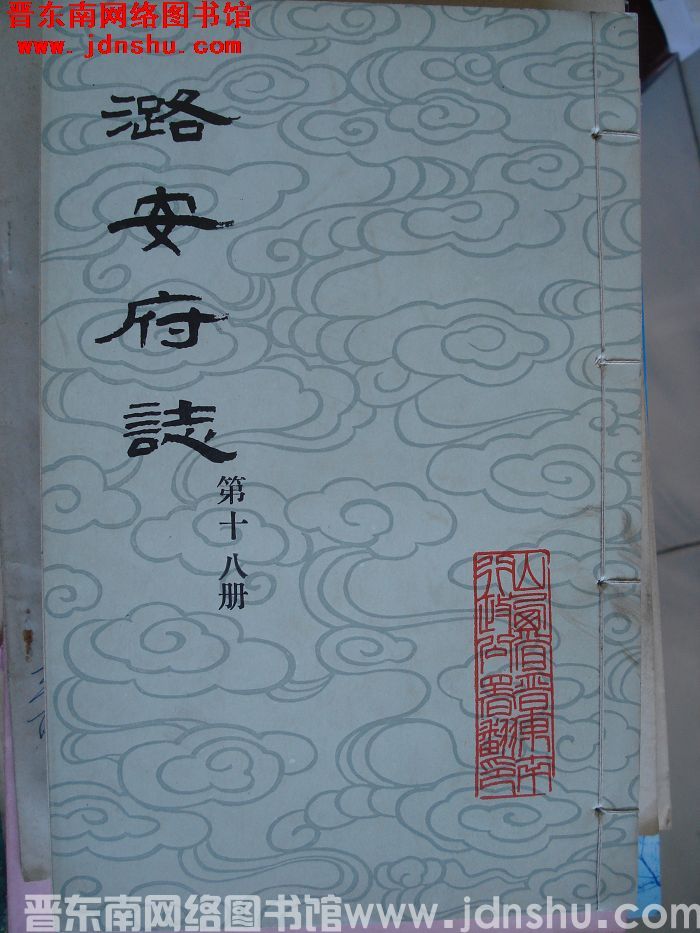 晋东南网络图书馆
www.jdnshu.com
潞安府誌
第十八册
山西省晋東南
行政公署翻印
晋东南网络图书馆www.jdnshu.com